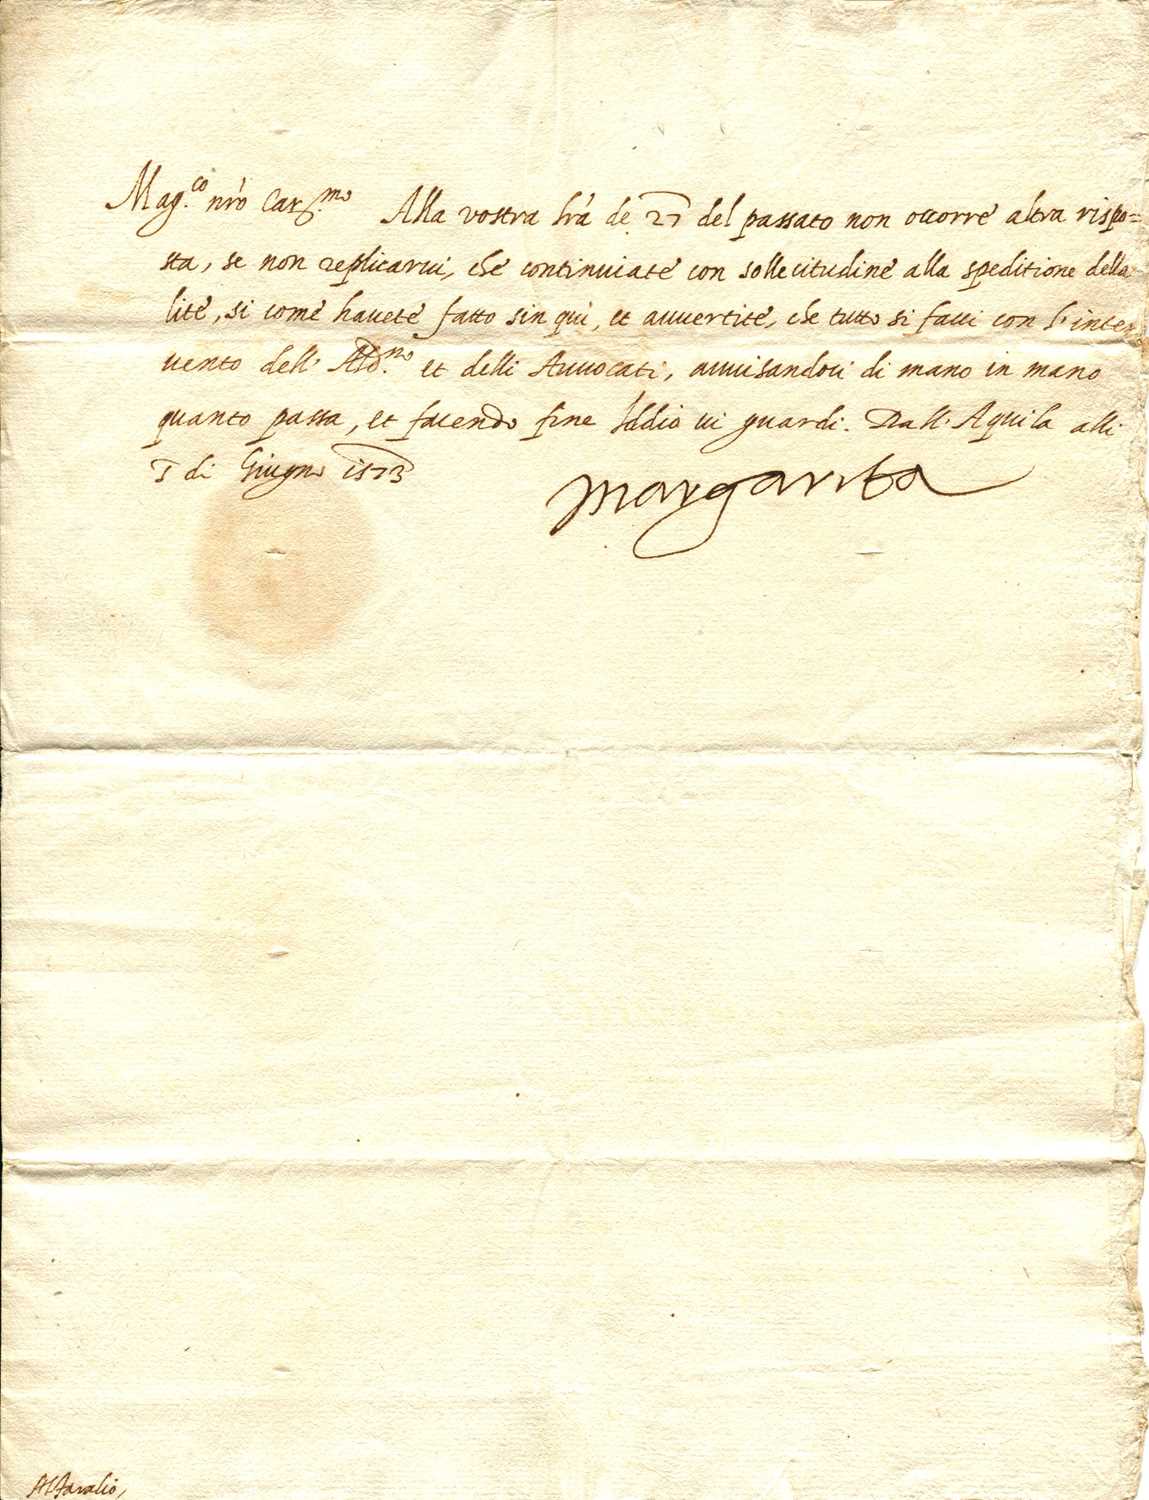 Mag.co nr̃o Car.mo Alla vostra lrã de 27 del passato non occorre altra rispo=
sta, se non replicarui, che continuiate con sollecitudine alla speditione della
lite, si come hauete fatto sin quì, et auuertite, che tutto si facci con l'inter
uento dell' et delli Auuocati, auuisandoci di mano in mano
quanto passa, et facendo fine Iddio ui guardi. Dall'Aquila alli
di Giugno 1573
Margarita